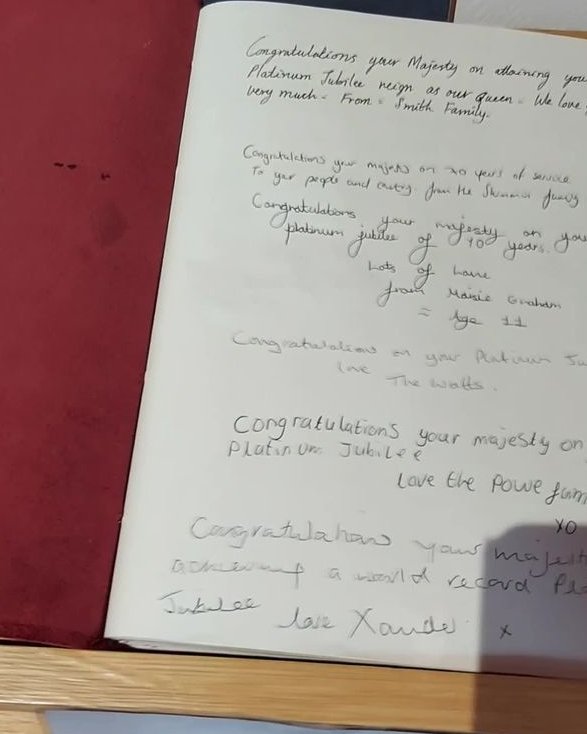 Congratulations your Majesty on attaining you
Platinum Jubilee reign as our Queen. We love
very much. From = Smith Family.
Congratulations your majesty on 70 years of service
To your people and from the family
Congratulations your majesty on you
platinum jubilee of 70 years.
Lots of Love
from Maisie Graham
= Age 11
Congratulations on your Platinum Ju
love The Watts.
Congratulations your majesty on
Platinum Jubilee
Love the Powe fam
XO
Congratulations your majest
a world record Pla
Jubilee love Xander x